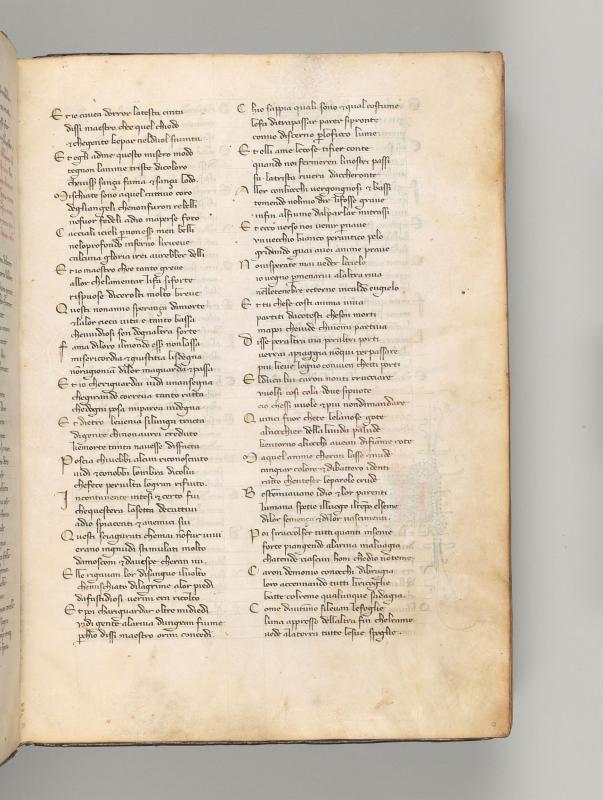 E t io cavea dorror latesta cinta
dissi maestro che e quel chiodo
et che gente
E t egli adme questo misero modo
tegnon lanime triste dicoloro
che visser sança fama et sança lodo.
M ischiate sono aquel cattivo coro
degliangeli chenonfuron rebelli
nefuor fedeli adio maperse foro
C accianli cieli p non esser men belli
nelo profondo inferno li riceve
calcuna gloria i rei avrebber delli
E t io maestro che e tanto greve
allor chelamentar lifa si forte
rispuose dicerolti molto breve
Q uesti nonanno sperança dimorte
et lalor cieca vita e tanto bassa
chenvidiosi son dognaltra sorte
F ama diloro ilmondo esser nonlassa
misericordia et giustitia lisdegna
nō ragioniā dilor maguarda et passa
E t io cheriguardai vidi unansegna
chegirando correva tanto ratta
chedogni posa miparea indegna
E t dietro levenia silunga tracta
digente chinon avrei creduto
che morte tanta navesse disfacta
P oscia chuebbi alcun riconosciuto
vidi et conobbi lombra dicolui
chefece pervilta logran rifiuto.
I ncontanente intesi et certo fui
chequestera lasetta decattivi
adio spiacenti et anemici sui
Q uesti sciagurati chemai nōfur vivi
erano ingnudi stimulati molto
damosconi et davespe cheran ivi
E lle rigavan lor disangue ilvolto
chemischiato dilagrime alor piedi
dafastidiosi vermi era ricolto
E t poi charriguardar oltre midiedi
vidi gente alariva dungran fiume
perchio dissi maestro ormi concedi.
C hio sappia quali sono et qual costume
lefa ditrapassar parer sipronte
comio discerno per lofioco lume
E t elli ame lecose tifier conte
quando noi fermeren linostri passi
su latrista rivera daccheronte
A llor conliocchi vergongnosi et bassi
temendo nolmio dir lifosse grave
infin alfiume dalparlar mitrassi
E t ecco verso noi venir pnave
un vecchio bianco perantico pelo
gridando guai avoi anime prave
N on isperate mai veder locielo
io vegno pmenarvi alaltra riva
nelletenebre etterne incaldo engielo
E t tu chese costi anima viva
partiti dacotesti cheson morti
mapoi chevide
D isse peraltra via peraltri porti
verrai apiaggia nō qui per passare
piu lieve legno convien cheti porti
E lduca lui caron nonti crucciare
vuolsi cosi cola dove sipuote
cio chessi vuole et piu nondimandare.
Q uinci fuor chete lelanose gote
alnocchier della livida palude
chentorno aliocchi avean difiame rote
M a quel anime cheran lasse et nude
cangiar colore et dibattero identi
ratto chenteser leparole crude
B estemiavano idio et lor parenti
lumana spetie illuogo iltempo elseme
dilor semença et dilor nascimenti.
P oi siraccolser tutti quanti inseme
forte piangendo alariva malvagia
chatende ciascun hom chedio nō teme
C aron demonio conocchi dibragia
loro accennando tutti liricoglie
batte colremo qualunque sadagia
C ome dautunno silevan lefoglie
luna appresso dellaltra fin chelramo
vede alaterra tutte lesue spoglie.